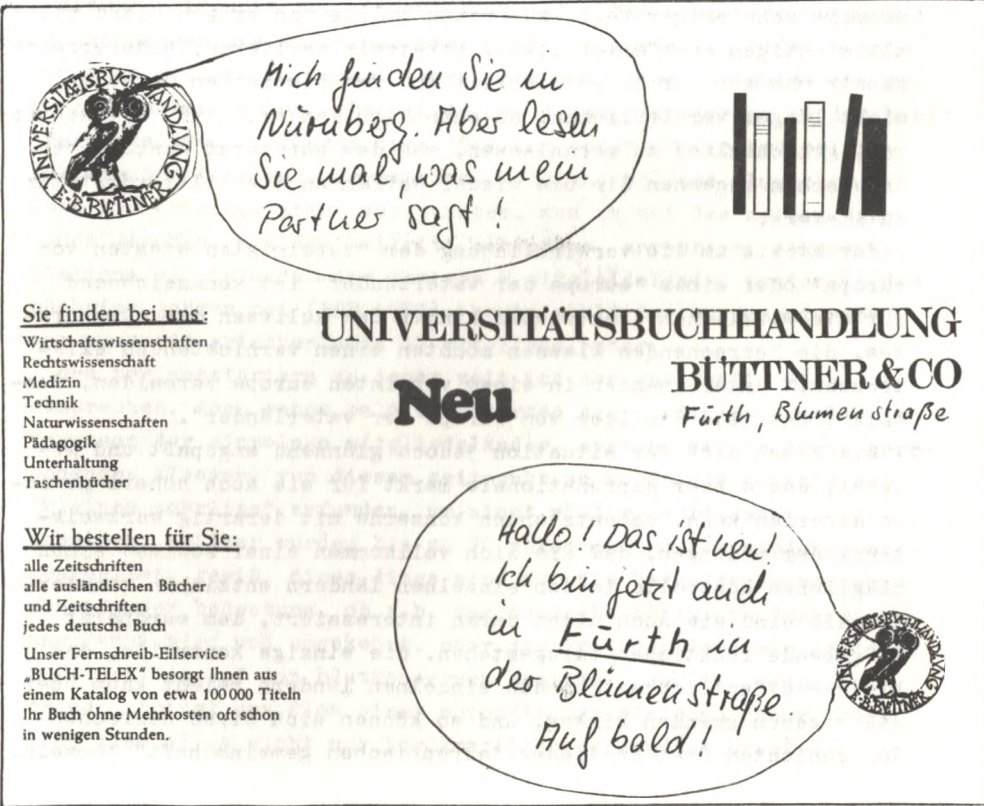 UNIVERSITÄTSBUCHHANDLUNG
E. B. BÜTTNER
Mich finden Sie in
Nürnberg. Aber lesen
Sie mal, was mein
Partner sagt!
Sie finden bei uns:
Wirtschaftswissenschaften
Rechtswissenschaft
Medizin
Technik
Naturwissenschaften
Pädagogik
Unterhaltung
Taschenbücher
Wir bestellen für Sie:
alle Zeitschriften
alle ausländischen Bücher
und Zeitschriften
jedes deutsche Buch
Unser Fernschreib-Eilservice
„BUCH-TELEX" besorgt Ihnen aus
einem Katalog von etwa 100 000 Titeln
Ihr Buch ohne Mehrkosten oft schon
in wenigen Stunden.
UNIVERSITÄTSBUCHHANDLUNG
BÜTTNER & CO
Neu
Fürth, Blumenstraße
Hallo! Das ist neu!
Ich bin jetzt auch
in Fürth in
der Blumenstraße.
Auf bald!
UNIVERSITÄTSBUCHHANDLUNG
E. B. BÜTTNER